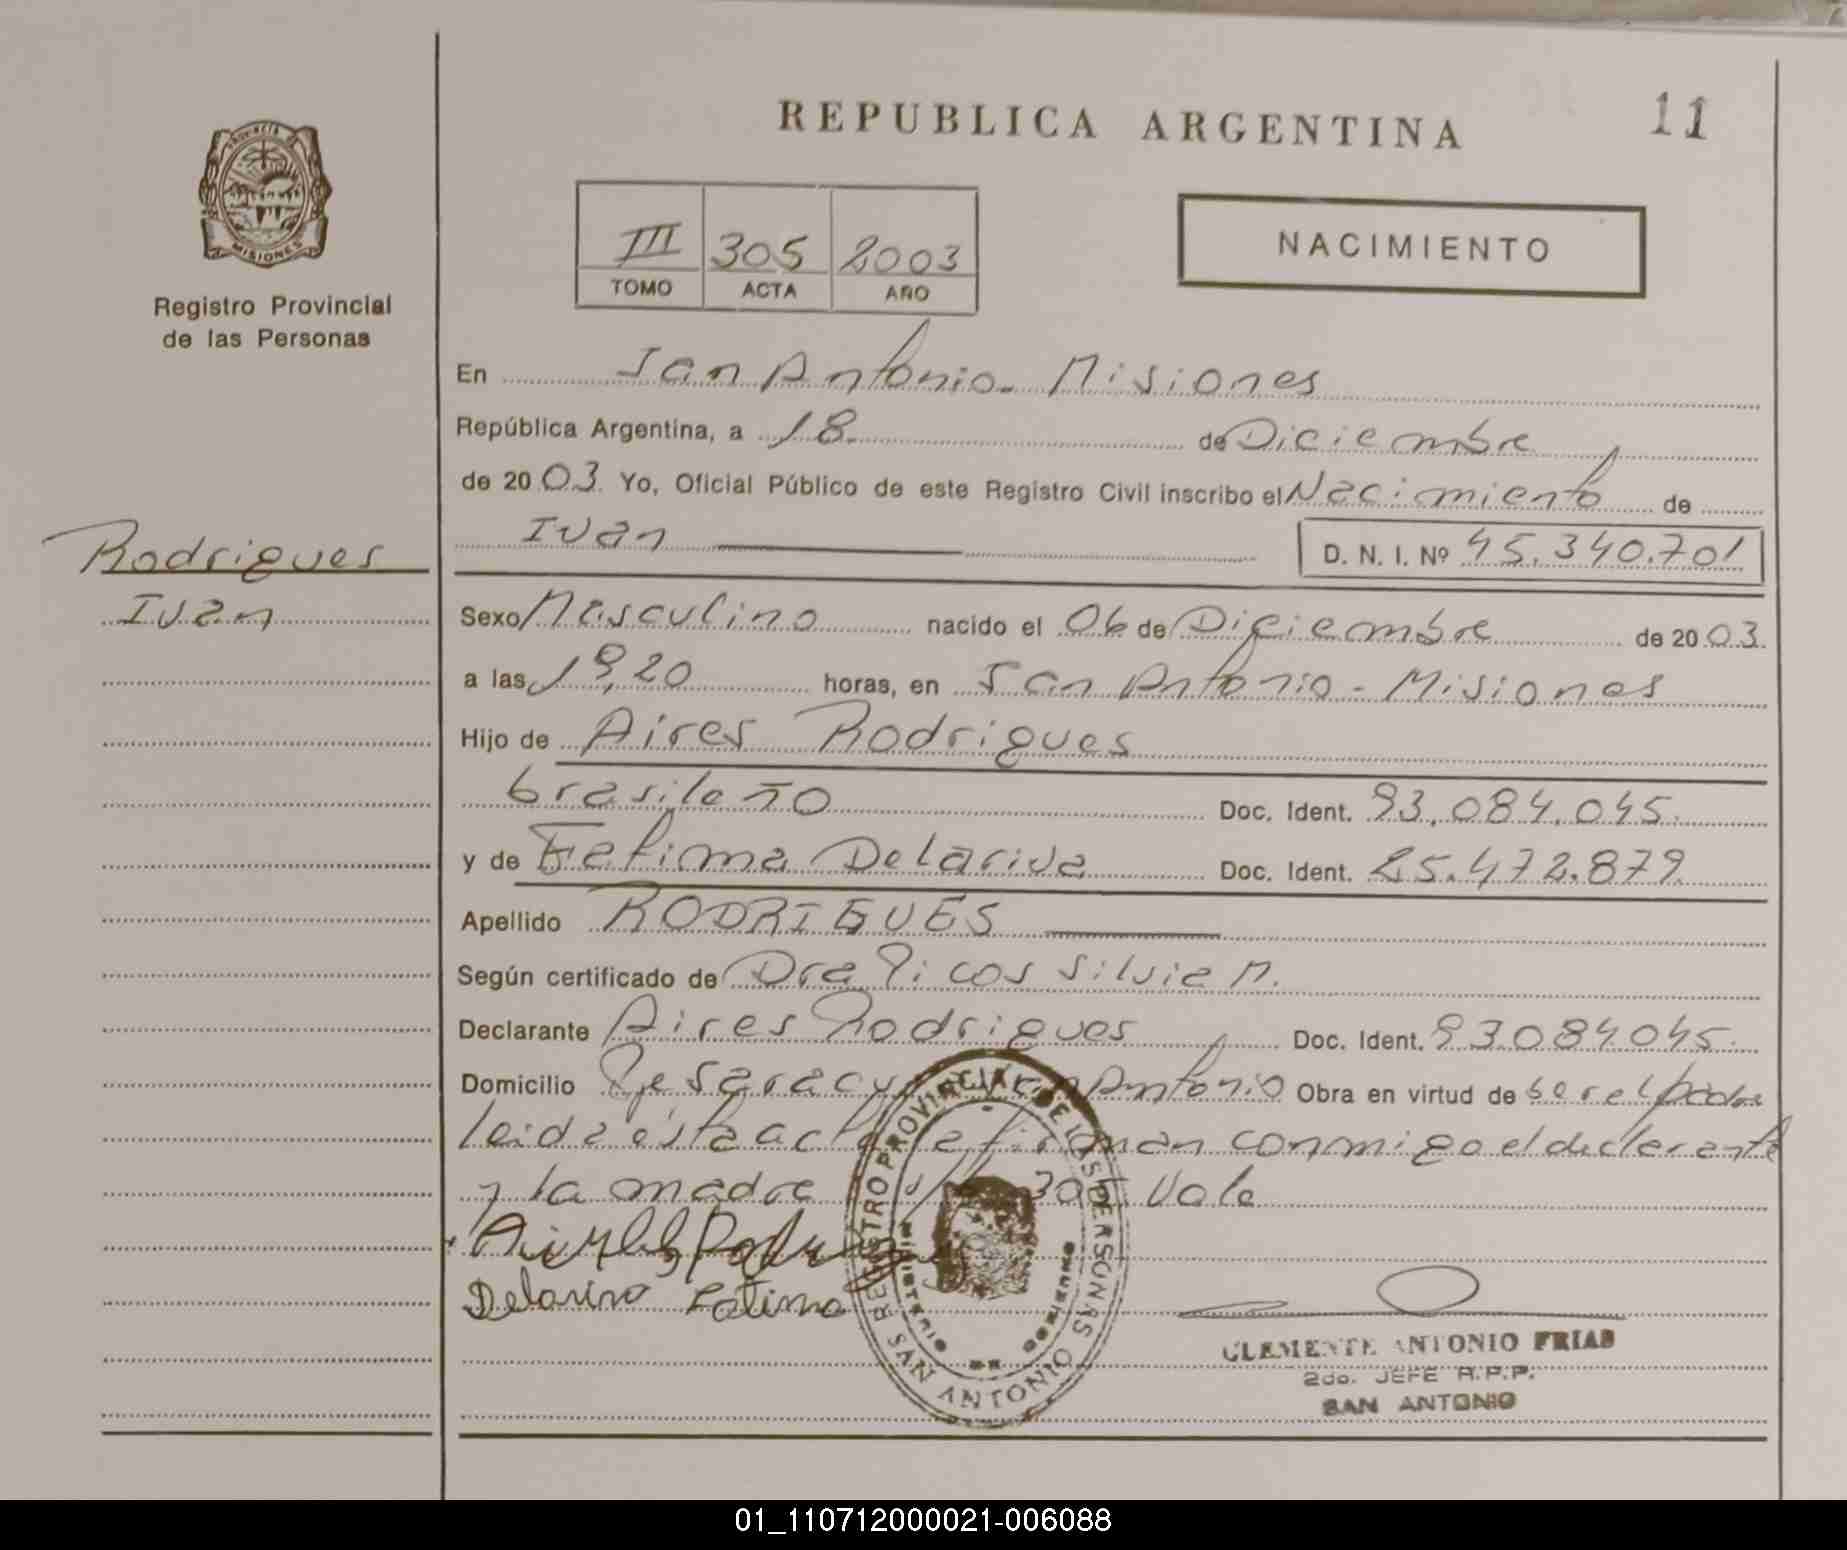 REPUBLICA ARGENTINA
11
PROVINCIA DE
MISIONES
Registro Provincial
de las Personas
III 305 2003
TOMO ACTA AÑO
NACIMIENTO
En San Antonio - Misiones
República Argentina, a 18 de Diciembre
de 2003. Yo, Oficial Público de este Registro Civil inscribo el Nacimiento de
Ivan D. N. I. Nº 45.340.701
Rodrigues
Ivan
Sexo Masculino nacido el 06 de Diciembre de 2003.
a las 19,20 horas, en San Antonio - Misiones
Hijo de Aires Rodrigues
brasileño Doc. Ident. 93.084.045.
y de Fatima Delariva Doc. Ident. 25.472.879.
Apellido RODRIGUES
Según certificado de Dra Picos Silvia M.
Declarante Aires Rodrigues Doc. Ident. 93084045.
Domicilio San Antonio Obra en virtud de ser el padre
leida ésta acta la firman conmigo el declarante
y la madre 305 Vale
Delariva Fatima
REGISTRO PROVINCIAL DE LAS PERSONAS
MINISTERIO DE GOBIERNO
SAN ANTONIO
CLEMENTE ANTONIO FRIAS
2do. JEFE R.P.P.
SAN ANTONIO
01_110712000021-006088